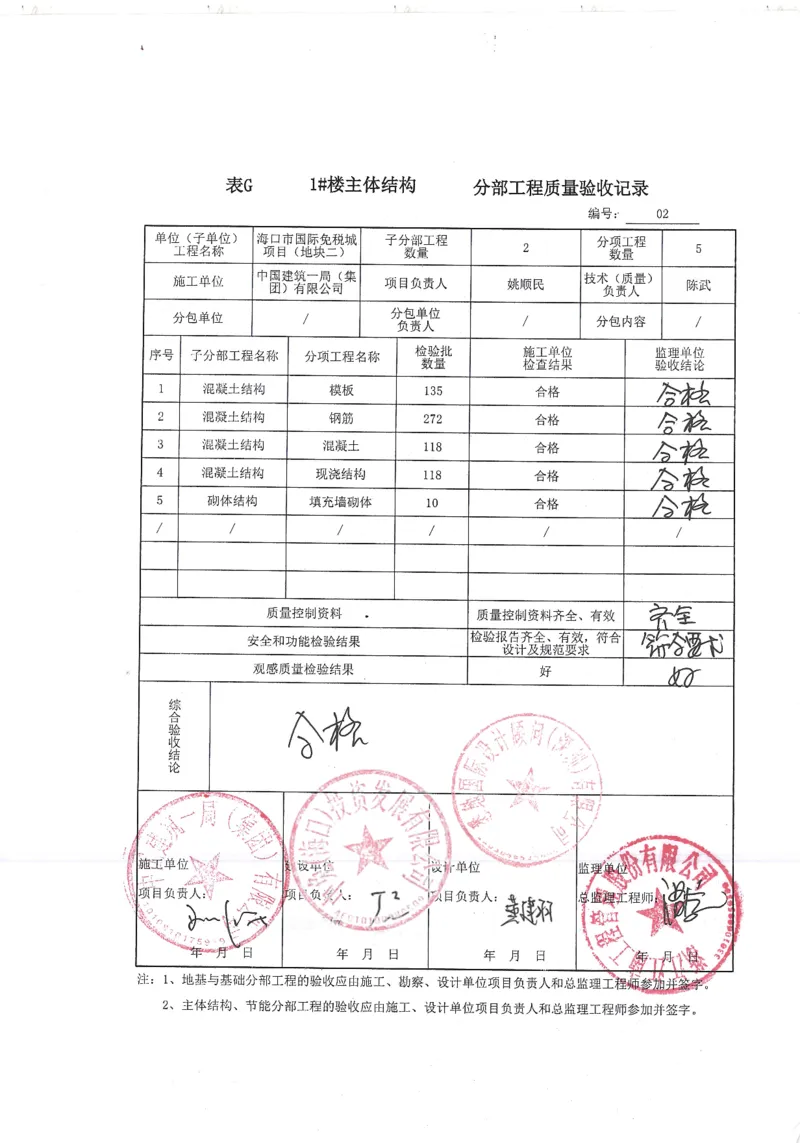 表G 1#楼主体结构 分部工程质量验收记录
编号: 02
单位（子单位）工程名称 海口市国际免税城项目（地块二） 子分部工程数量 2 分项工程数量 5
施工单位 中国建筑一局（集团）有限公司 项目负责人 姚顺民 技术（质量）负责人 陈武
分包单位 / 分包单位负责人 / 分包内容 /
序号 子分部工程名称 分项工程名称 检验批数量 施工单位检查结果 监理单位验收结论
1 混凝土结构 模板 135 合格 合格
2 混凝土结构 钢筋 272 合格 合格
3 混凝土结构 混凝土 118 合格 合格
4 混凝土结构 现浇结构 118 合格 合格
5 砌体结构 填充墙砌体 10 合格 合格
/ / / / / /
质量控制资料 质量控制资料齐全、有效 齐全
安全和功能检验结果 检验报告齐全、有效，符合设计及规范要求 符合要求
观感质量检验结果 好 好
综合验收结论 合格
施工单位 建设单位 设计单位 监理单位
项目负责人: 项目负责人: 项目负责人: 总监理工程师:
年 月 日 年 月 日 年 月 日 年 月 日
注: 1、地基与基础分部工程的验收应由施工、勘察、设计单位项目负责人和总监理工程师参加并签字。
2、主体结构、节能分部工程的验收应由施工、设计单位项目负责人和总监理工程师参加并签字。